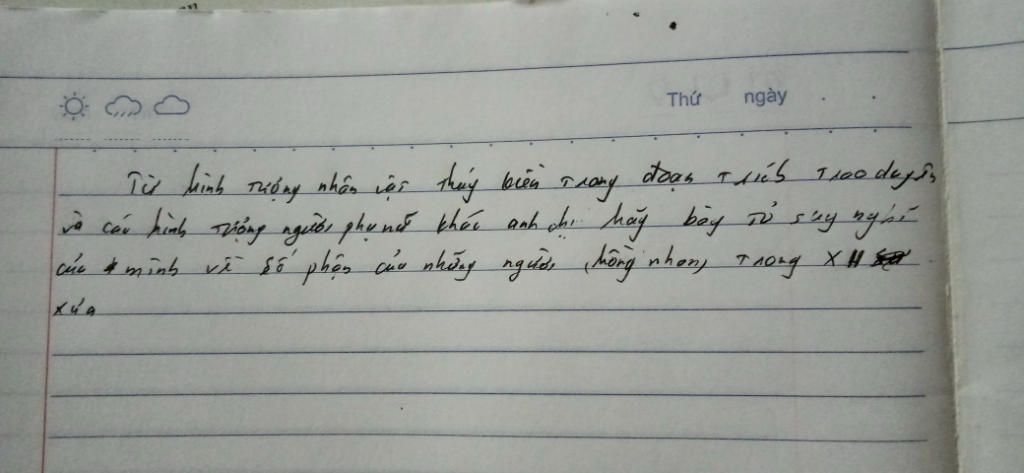 Thứ ngày . .
Từ hình tượng nhân vật thúy kiều trong đoạn trích trao duyên
và các hình tượng người phụ nữ khác anh chị hãy bày tỏ suy nghĩ
của mình về số phận của những người (hồng nhan) trong XH
xưa